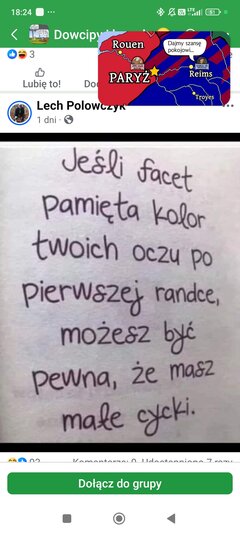 18:24
51
Dowcipy
3
Rouen
PARYŻ
Dajmy szansę
pokojowi...
Reims
Troyes
Lubię to!
Lech Polowczyk
1 dni
Jeśli facet
pamięta kolor
twoich oczu po
pierwszej randce,
możesz być
pewna, że masz
małe cycki.
Dołącz do grupy